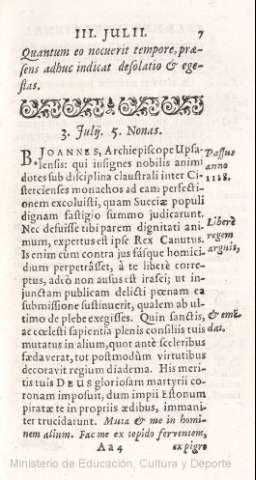 III. JULII. 7
Quantum eo nocuerit tempore, præ-
sens adhuc indicat desolatio & ege-
stas.
3. Julij. 5. Nonas.
B. JOANNES, Archiepiscope Upsa-
lensis: qui insignes nobilis animi
dotes sub disciplina claustrali inter Ci-
stercienses monachos ad eam perfecti-
onem excoluisti, quam Sueciæ populi
dignam fastigio summo judicarunt.
Nec defuisse tibi parem dignitati ani-
mum, expertus est ipse Rex Canutus.
Is enim cùm contra jus fásque homici-
dium perpetrâsset, à te liberè corre-
ptus, adeò non ausus est irasci; ut in-
junctam publicam delicti pœnam ea
submissione sustinuerit, qualem ab ul-
timo de plebe exegisses. Quin sanctis,
ac cœlesti sapientia plenis consiliis tuis
mutatus in alium, quot antè sceleribus
fœdaverat, tot postmodùm virtutibus
decoravit regium diadema. His meri-
tis tuis DEUS gloriosam martyrii co-
ronam imposuit, dum impii Estonum
piratæ te in propriis ædibus, immani-
ter trucidarunt. Muta & me in homi-
nem alium. Fac me ex tepido ferventem,
Aa 4 ex pigro
Passus
anno
1188.
Liberè
regem
arguis,
& emē-
das.
Ministerio de Educación, Cultura y Deporte